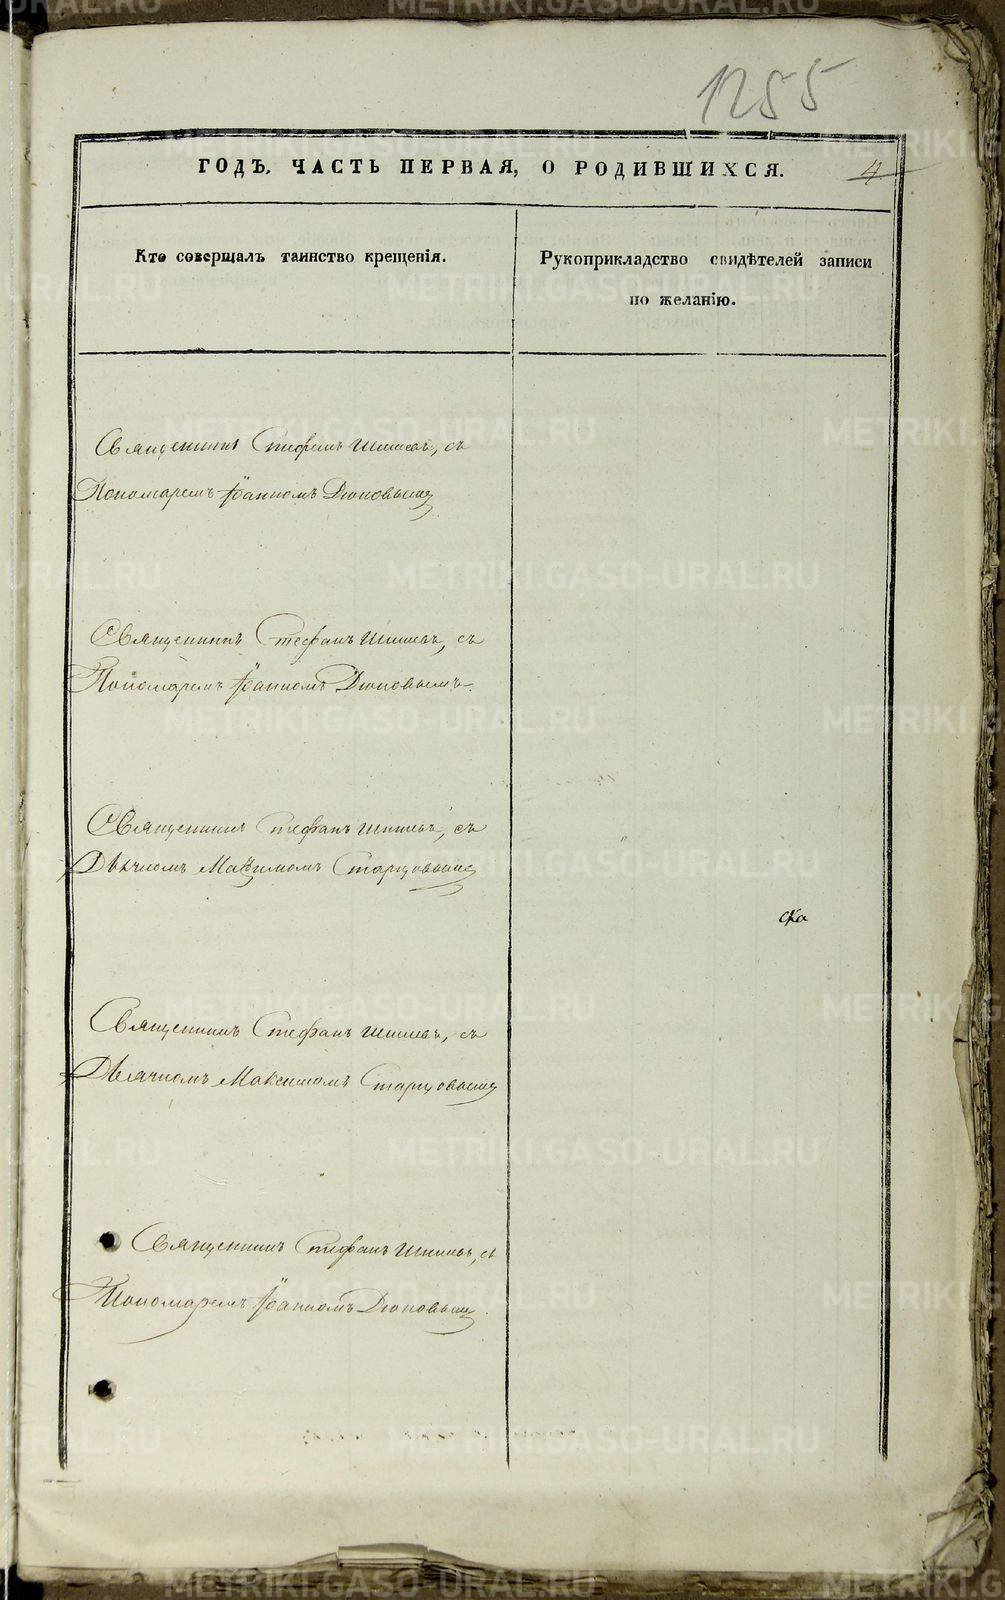 1255
ГОДЪ, ЧАСТЬ ПЕРВАЯ, О РОДИВШИХСЯ.
4
Кто совершалъ таинство крещенія.
Рукоприкладство свидѣтелей записи
по желанію.
Священникъ Стефанъ Шишевъ, съ
Пономаремъ Іоанномъ Дюповымъ
Священникъ Стефанъ Шишевъ, съ
Пономаремъ Іоанномъ Дюповымъ
Священникъ Стефанъ Шишевъ, съ
Дьячкомъ Максимомъ Старцовымъ
Священникъ Стефанъ Шишевъ, съ
Дьячкомъ Максимомъ Старцовымъ
Священникъ Стефанъ Шишевъ, съ
Пономаремъ Іоанномъ Дюповымъ
METRIKI.GASO-URAL.RU